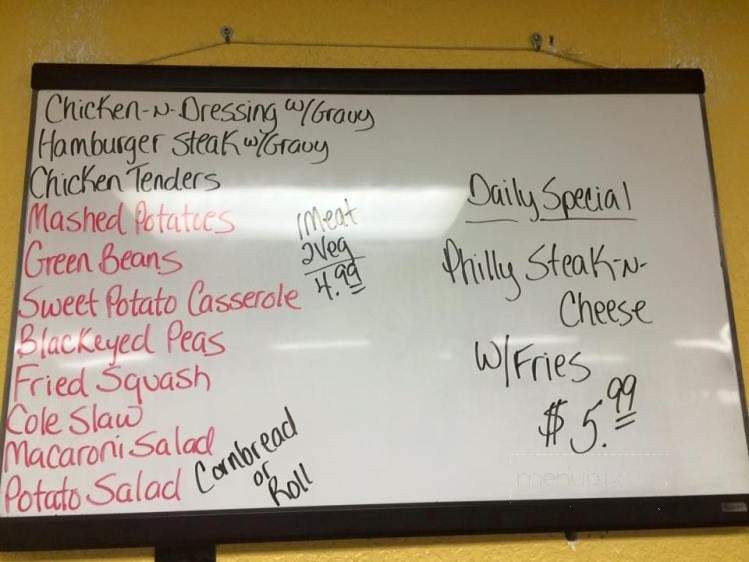 Chicken-N-Dressing w/Gravy
Hamburger Steak w/Gravy
Chicken Tenders
Mashed Potatoes
Green Beans
Sweet Potato Casserole
Blackeyed Peas
Fried Squash
Cole Slaw
Macaroni Salad
Potato Salad
Cornbread
or
Roll
1 Meat
2 Veg
4.99
Daily Special
Philly Steak-N-
Cheese
w/Fries
$5.99